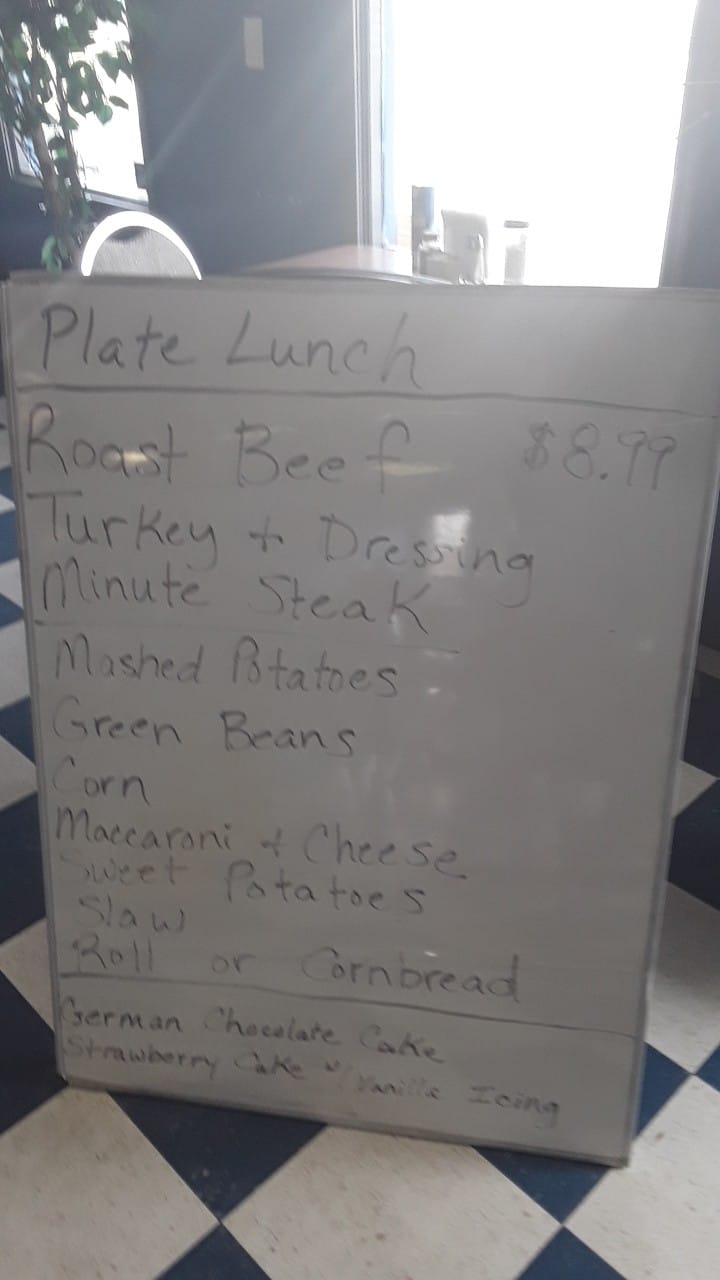 Plate Lunch
Roast Beef $8.99
Turkey + Dressing
Minute Steak
Mashed Potatoes
Green Beans
Corn
Maccaroni + Cheese
Sweet Potatoes
Slaw
Roll or Cornbread
German Chocolate Cake
Strawberry Cake w/ Vanilla Icing